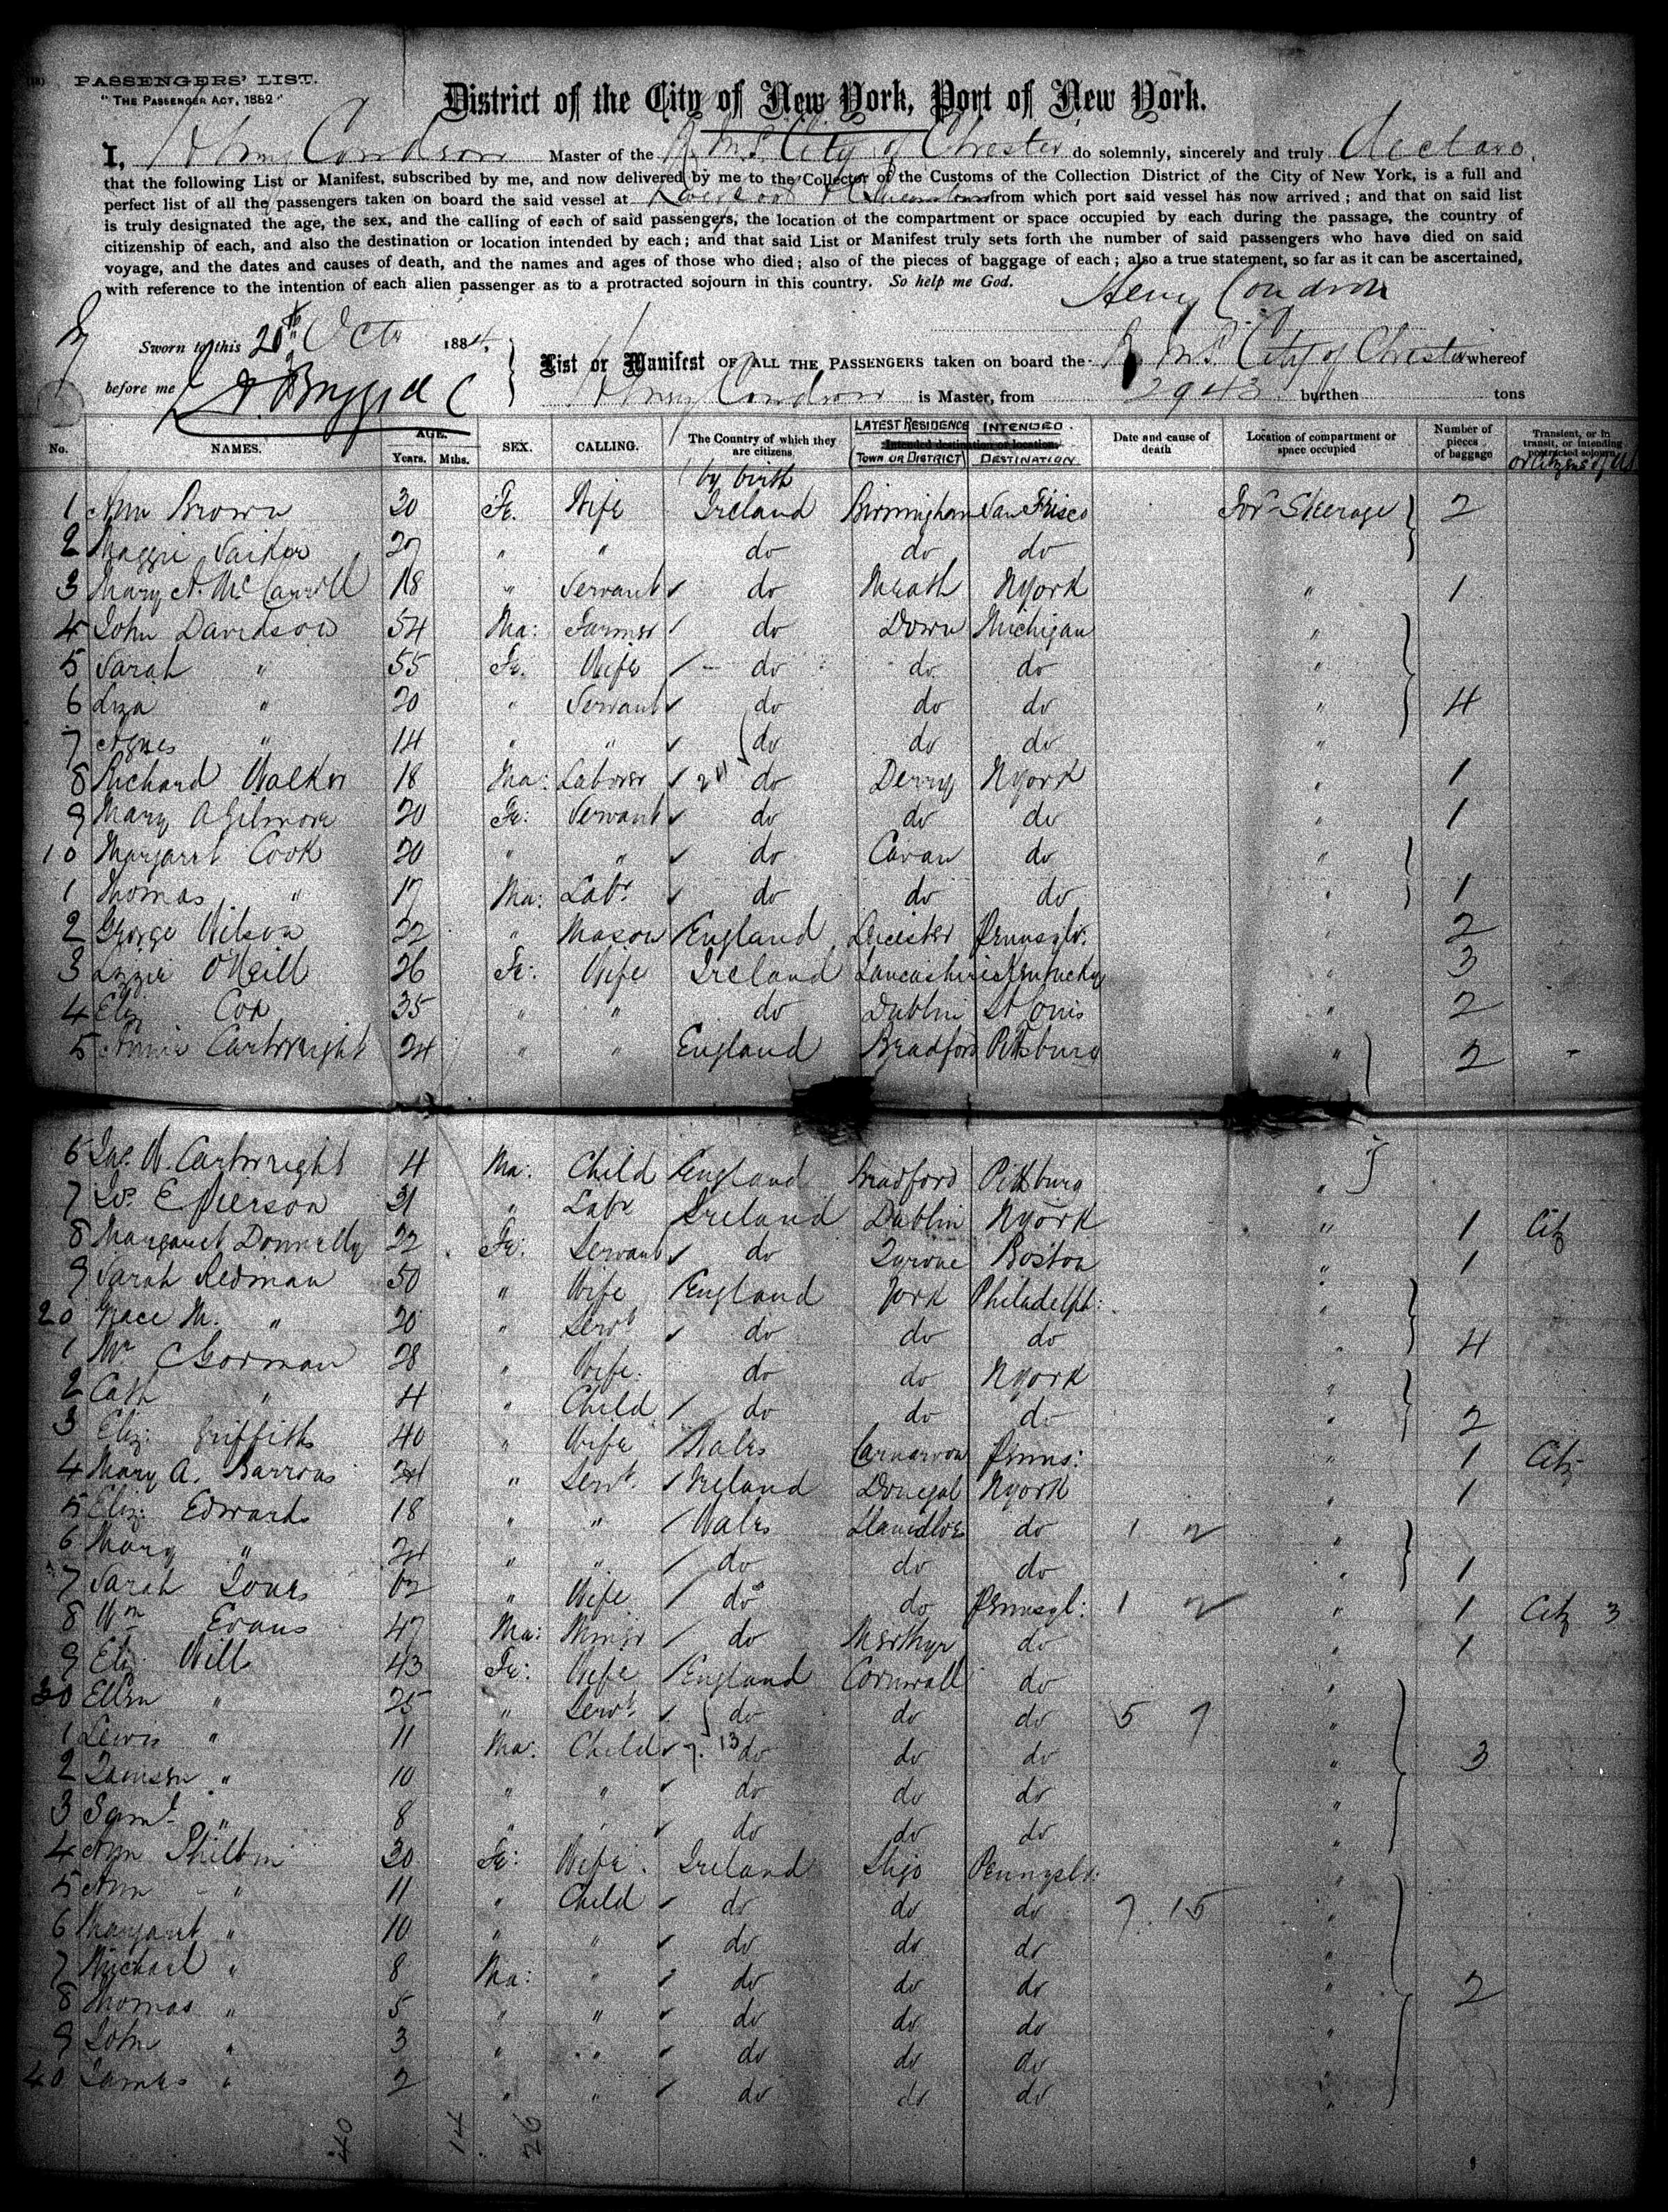 PASSENGERS' LIST.
"THE PASSENGER ACT, 1882"
District of the City of New York, Port of New York.
I, Henry Condron Master of the R.M.S. City of Chester do solemnly, sincerely and truly declare,
that the following List or Manifest, subscribed by me, and now delivered by me to the Collector of the Customs of the Collection District of the City of New York, is a full and
perfect list of all the passengers taken on board the said vessel at Liverpool & Queenstown from which port said vessel has now arrived; and that on said list
is truly designated the age, the sex, and the calling of each of said passengers, the location of the compartment or space occupied by each during the passage, the country of
citizenship of each, and also the destination or location intended by each; and that said List or Manifest truly sets forth the number of said passengers who have died on said
voyage, and the dates and causes of death, and the names and ages of those who died; also of the pieces of baggage of each; also a true statement, so far as it can be ascertained,
with reference to the intention of each alien passenger as to a protracted sojourn in this country. So help me God.
Henry Condron
Sworn to this 20th Octr 1884.
before me
List or Manifest OF ALL THE PASSENGERS taken on board the R.M.S. City of Chester whereof
Henry Condron is Master, from 2943 burthen tons
No. NAMES. AGE. Years. Mths. SEX. CALLING. The Country of which they are citizens by birth LATEST RESIDENCE TOWN OR DISTRICT INTENDED DESTINATION Intended destination or location. Date and cause of death Location of compartment or space occupied Number of pieces of baggage Transient, or in transit, or intending protracted sojourn or Citizens of US
1 Ann Brown 30 Fe. Wife Ireland Birmingham San Frisco For'd Steerage 2
2 Maggie 27 " " do do do
3 Mary A. McCarroll 18 " Servant do Meath NYork " 1
4 John Davidson 54 Ma: Farmer do Down Michigan "
5 Sarah " 55 Fe. Wife do do do "
6 Liza " 20 " Servant do do do " 4
7 Agnes " 14 " " do do do "
8 Richard Walker 18 Ma: Laborer do Derry NYork " 1
9 Mary A Gilmore 20 Fe: Servant do do do " 1
10 Margaret Cook 20 " " do Cavan do "
1 Thomas " 17 Ma: Labr do do do " 1
2 George Wilson 22 " Mason England Leicester Pennsylv. " 2
3 Lizzie O'Neill 26 Fe: Wife Ireland Lancashire Kentucky " 3
4 Eliz Cox 35 " " do Dublin St Louis " 2
5 Annie Cartwright 24 " " England Bradford Pittsburg " 2
6 Jno. W. Cartwright 4 Ma: Child England Bradford Pittsburg "
7 E Pierson 31 " Labr Ireland Dublin NYork " 1 Citz
8 Margaret Donnelly 22 Fe: Servant do Tyrone Boston " 1
9 Sarah Redman 50 " Wife England York Philadelph: "
20 Grace M. " 20 " Servt do do do " 4
1 Mrs Gorman 28 " Wife. do do NYork "
2 Cath " 4 " Child do do do " 2
3 Eliz: Griffiths 40 " Wife Wales Carnarvon Penns: " 1 Citz
4 Mary A. Barrons 24 " Servt. Ireland Donegal NYork " 1
5 Eliz: Edwards 18 " " Wales Llanidloes do 1 2 "
6 Mary " 24 " " do do do " 1
7 Sarah Jones 62 " Wife do do Pennsyl: 1 2 " 1 Citz 3
8 Wm Evans 47 Ma: Miner do Merthyr do " 1
9 Eliz Will 43 Fe: Wife England Cornwall do "
30 Ellen " 25 " Servt. do do do 5 7 "
1 Lewis " 11 Ma: Child 7.13 do do do " 3
2 " 10 " " do do do "
3 Saml " 8 " " do do do "
4 Ann Philbin 30 Fe: Wife. Ireland Sligo Pennsylv: "
5 Ann " 11 " Child do do do 7 15 "
6 Margaret " 10 " " do do do "
7 Michael " 8 Ma: " do do do " 2
8 Thomas " 5 " " do do do "
9 John " 3 " " do do do "
40 James " 2 " " do do do "
40 14 26